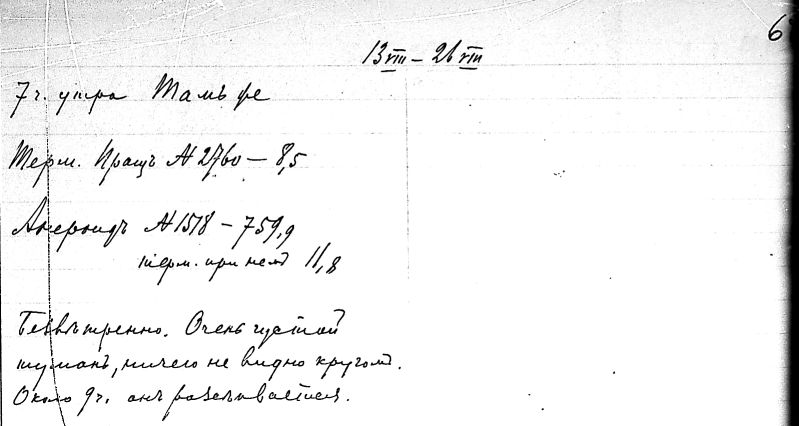 6
13 VIII – 26 VIII
7 ч. утра Тамъ же
Терм. Пращъ № 2760 – 8,5
Анероидъ № 1518 – 759,9
терм. при немъ 11,8
Безвѣтренно. Очень густой
туманъ, ничего не видно кругомъ.
Около 9 ч. онъ разсѣивается.